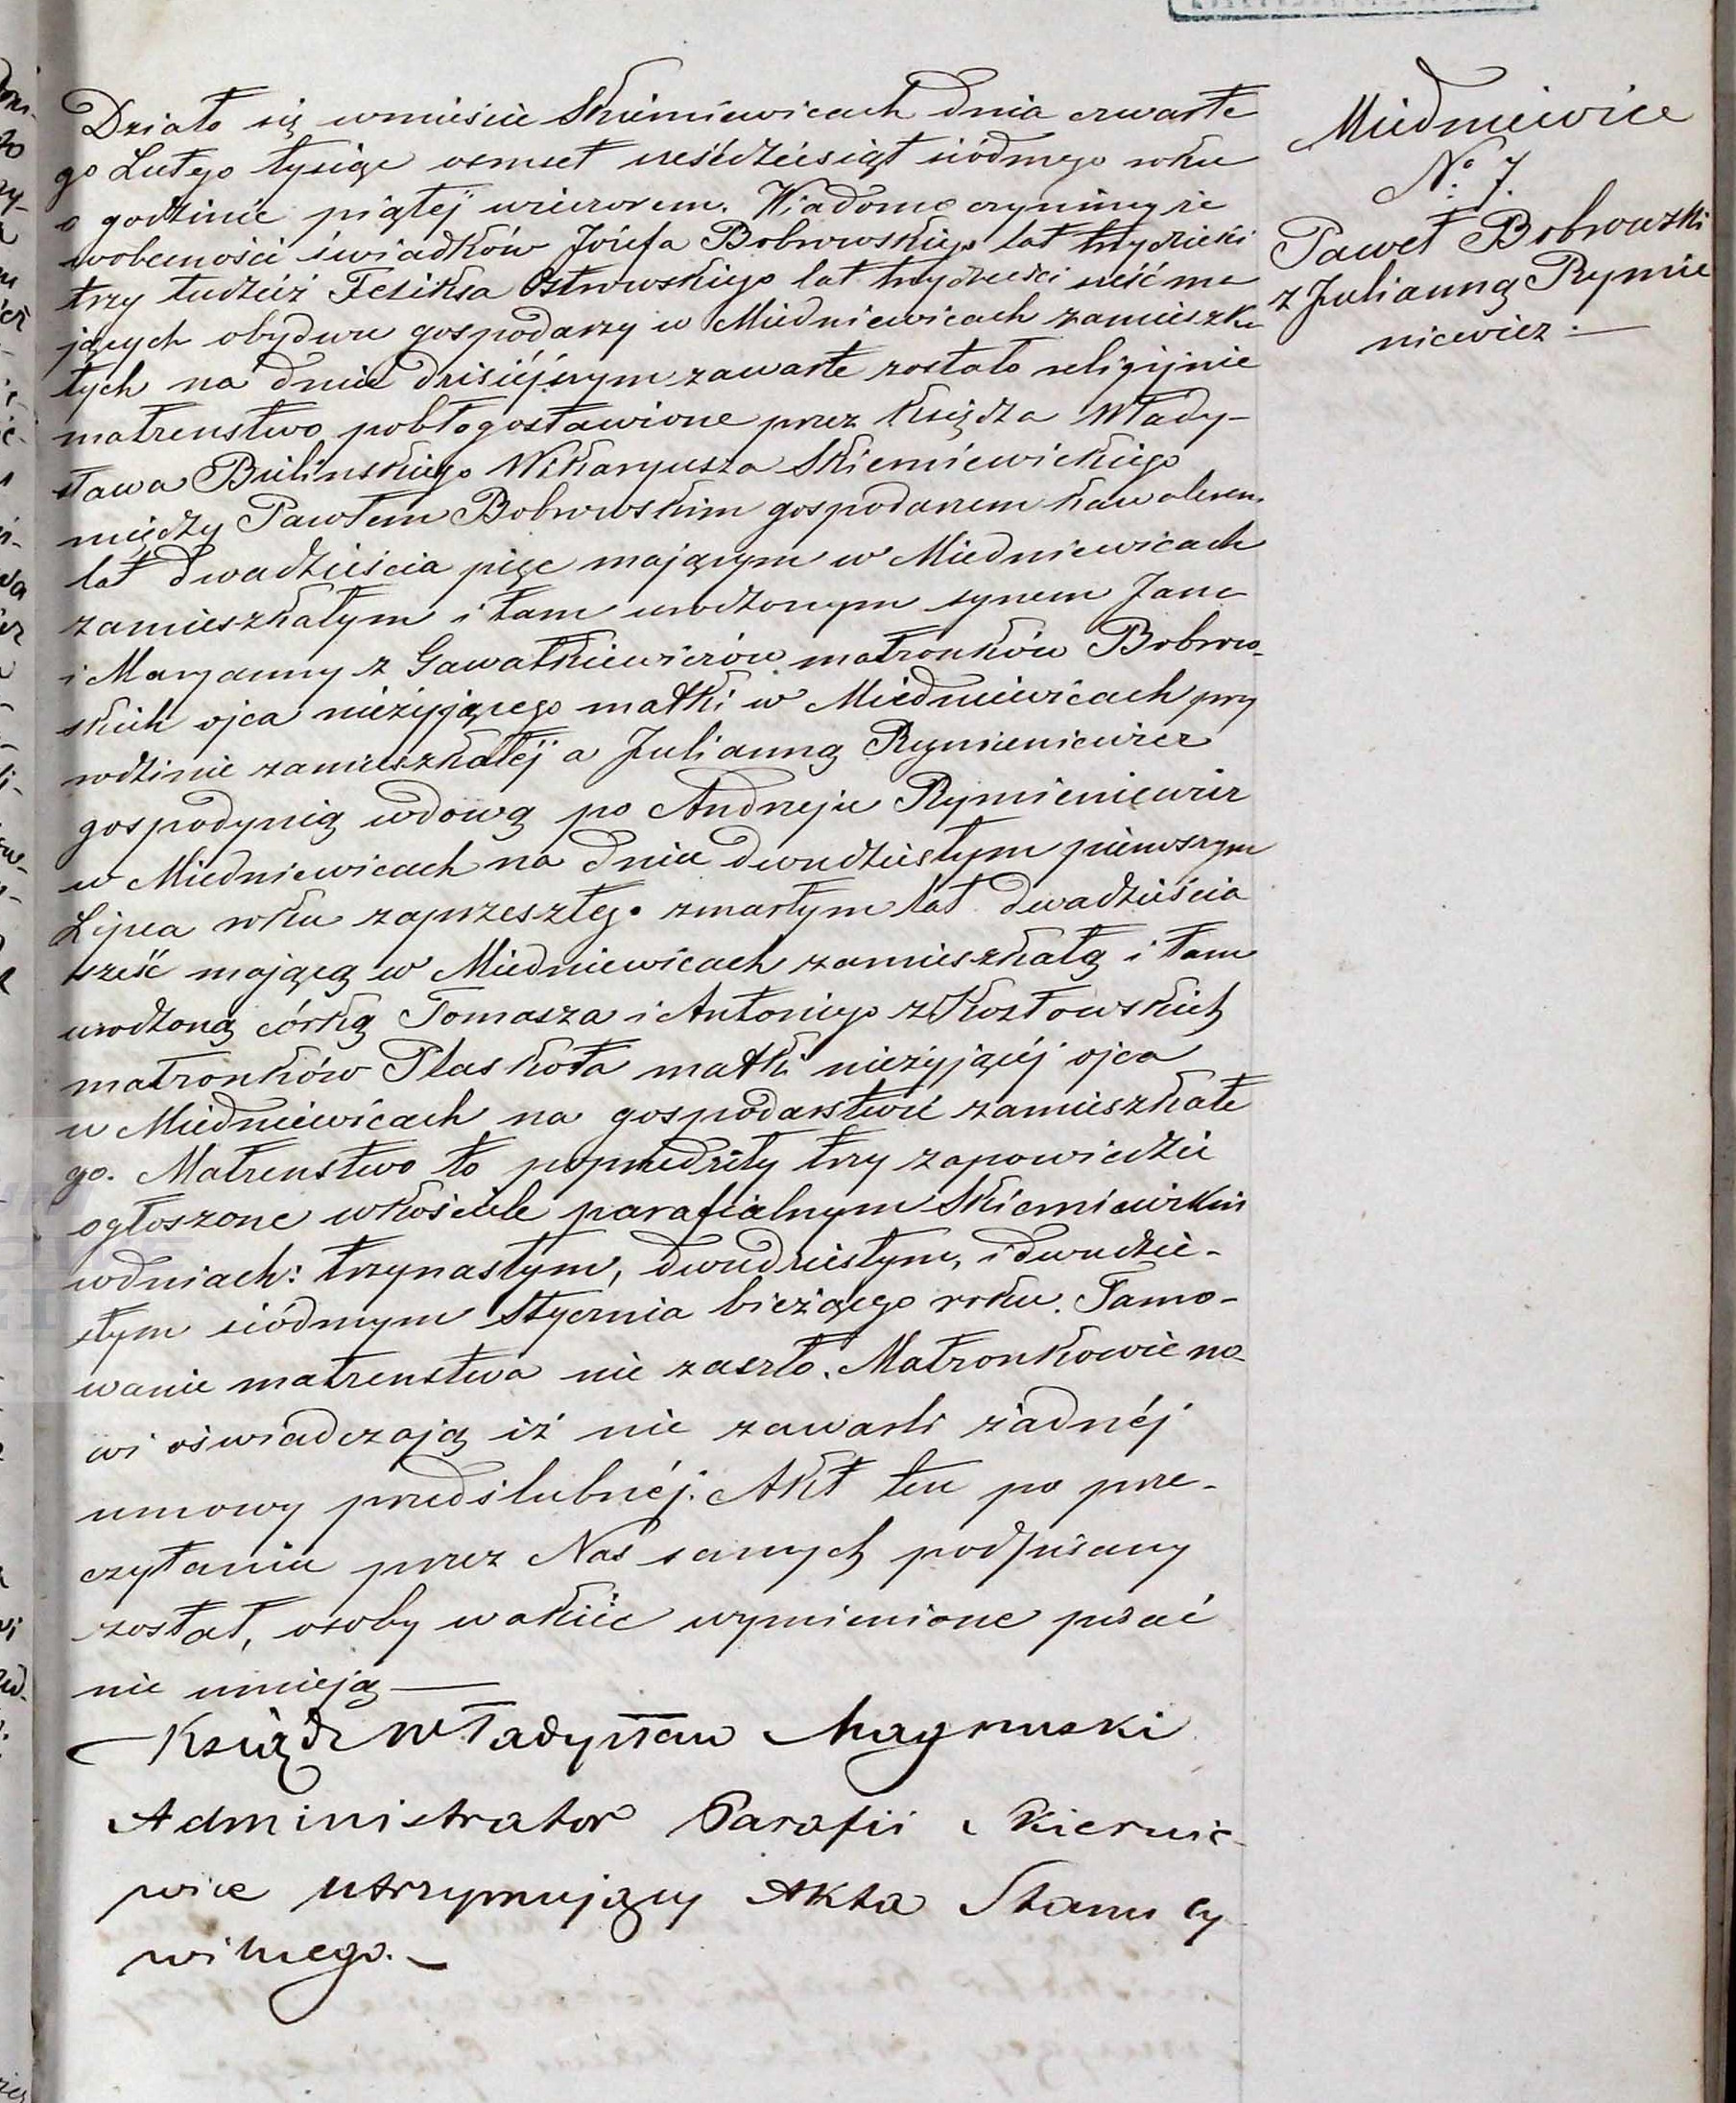 Działo się wmieście Skierniewicach dnia czwarte
go Lutego tysiąc osmset sześćdziesiąt siódmego roku
o godzinie piątéj wieczorem. Wiadomo czynimy że
wobecności świadków Józefa Bobrowskiego lat trzydzieści
trzy tudzież Feliksa Ostrowskiego lat trzydzieści sześć ma
jących obydwu gospodarzy w Miedniewicach zamieszka
łych na dniu dzisiéjszym zawarte zostało religijnie
małżenstwo pobłogosławione przez Księdza Włady-
sława Bulinskiego Wikaryusza Skierniewickiego
między Pawłem Bobrowskim gospodarzem kawalerem
lat dwadzieścia pięc mającym w Miedniewicach
zamieszkałym i tam urodzonym synem Jana
i Maryanny z Gawałkiewiczów małżonków Bobrow-
skich ojca nieżyjącego matki w Miedniewicach przy
rodzinie zamieszkałéj a Julianną Rymieniewicz
gospodynią wdową po Andrzeju Rymieniewicz
w Miedniewicach na dniu dwudziestym pierwszym
Lipca roku zaprzeszłego zmarłym lat dwadzieścia
sześć mającą w Miedniewicach zamieszkałą i tam
urodzoną córką Tomasza i Antoniego z Kozłowskich
małżonków Płaskota matki nieżyjącéj ojca
w Miedniewicach na gospodarstwie zamieszkałe
go. Małżenstwo to poprzedziły trzy zapowiedzie
ogłoszone wkościele parafialnym Skierniewickim
wdniach: trzynastym, dwudziestym, i dwudzie-
stym siódmym Stycznia bieżącego roku. Tamo-
wanie małżenstwa nie zaszło. Małżonkowie no-
wi oświadczają iż nie zawarli żadnéj
umowy przedślubnéj. Akt ten po prze-
czytaniu przez Nas samych podpisany
został, osoby w akcie wymienione pisać
nie umieją
Ksiądz Władysław Magnuski
Administrator Parafii Skiernie-
wice utrzymujący Akta Stanu Cy
wilnego.
Miedniewice
No. 7.
Paweł Bobrowski
z Julianną Rymie
niewicz